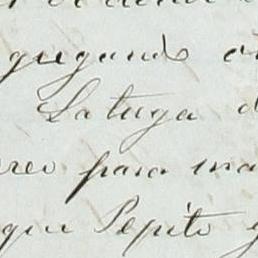 gregando
La tuga d
reo para ma
que Pepito y